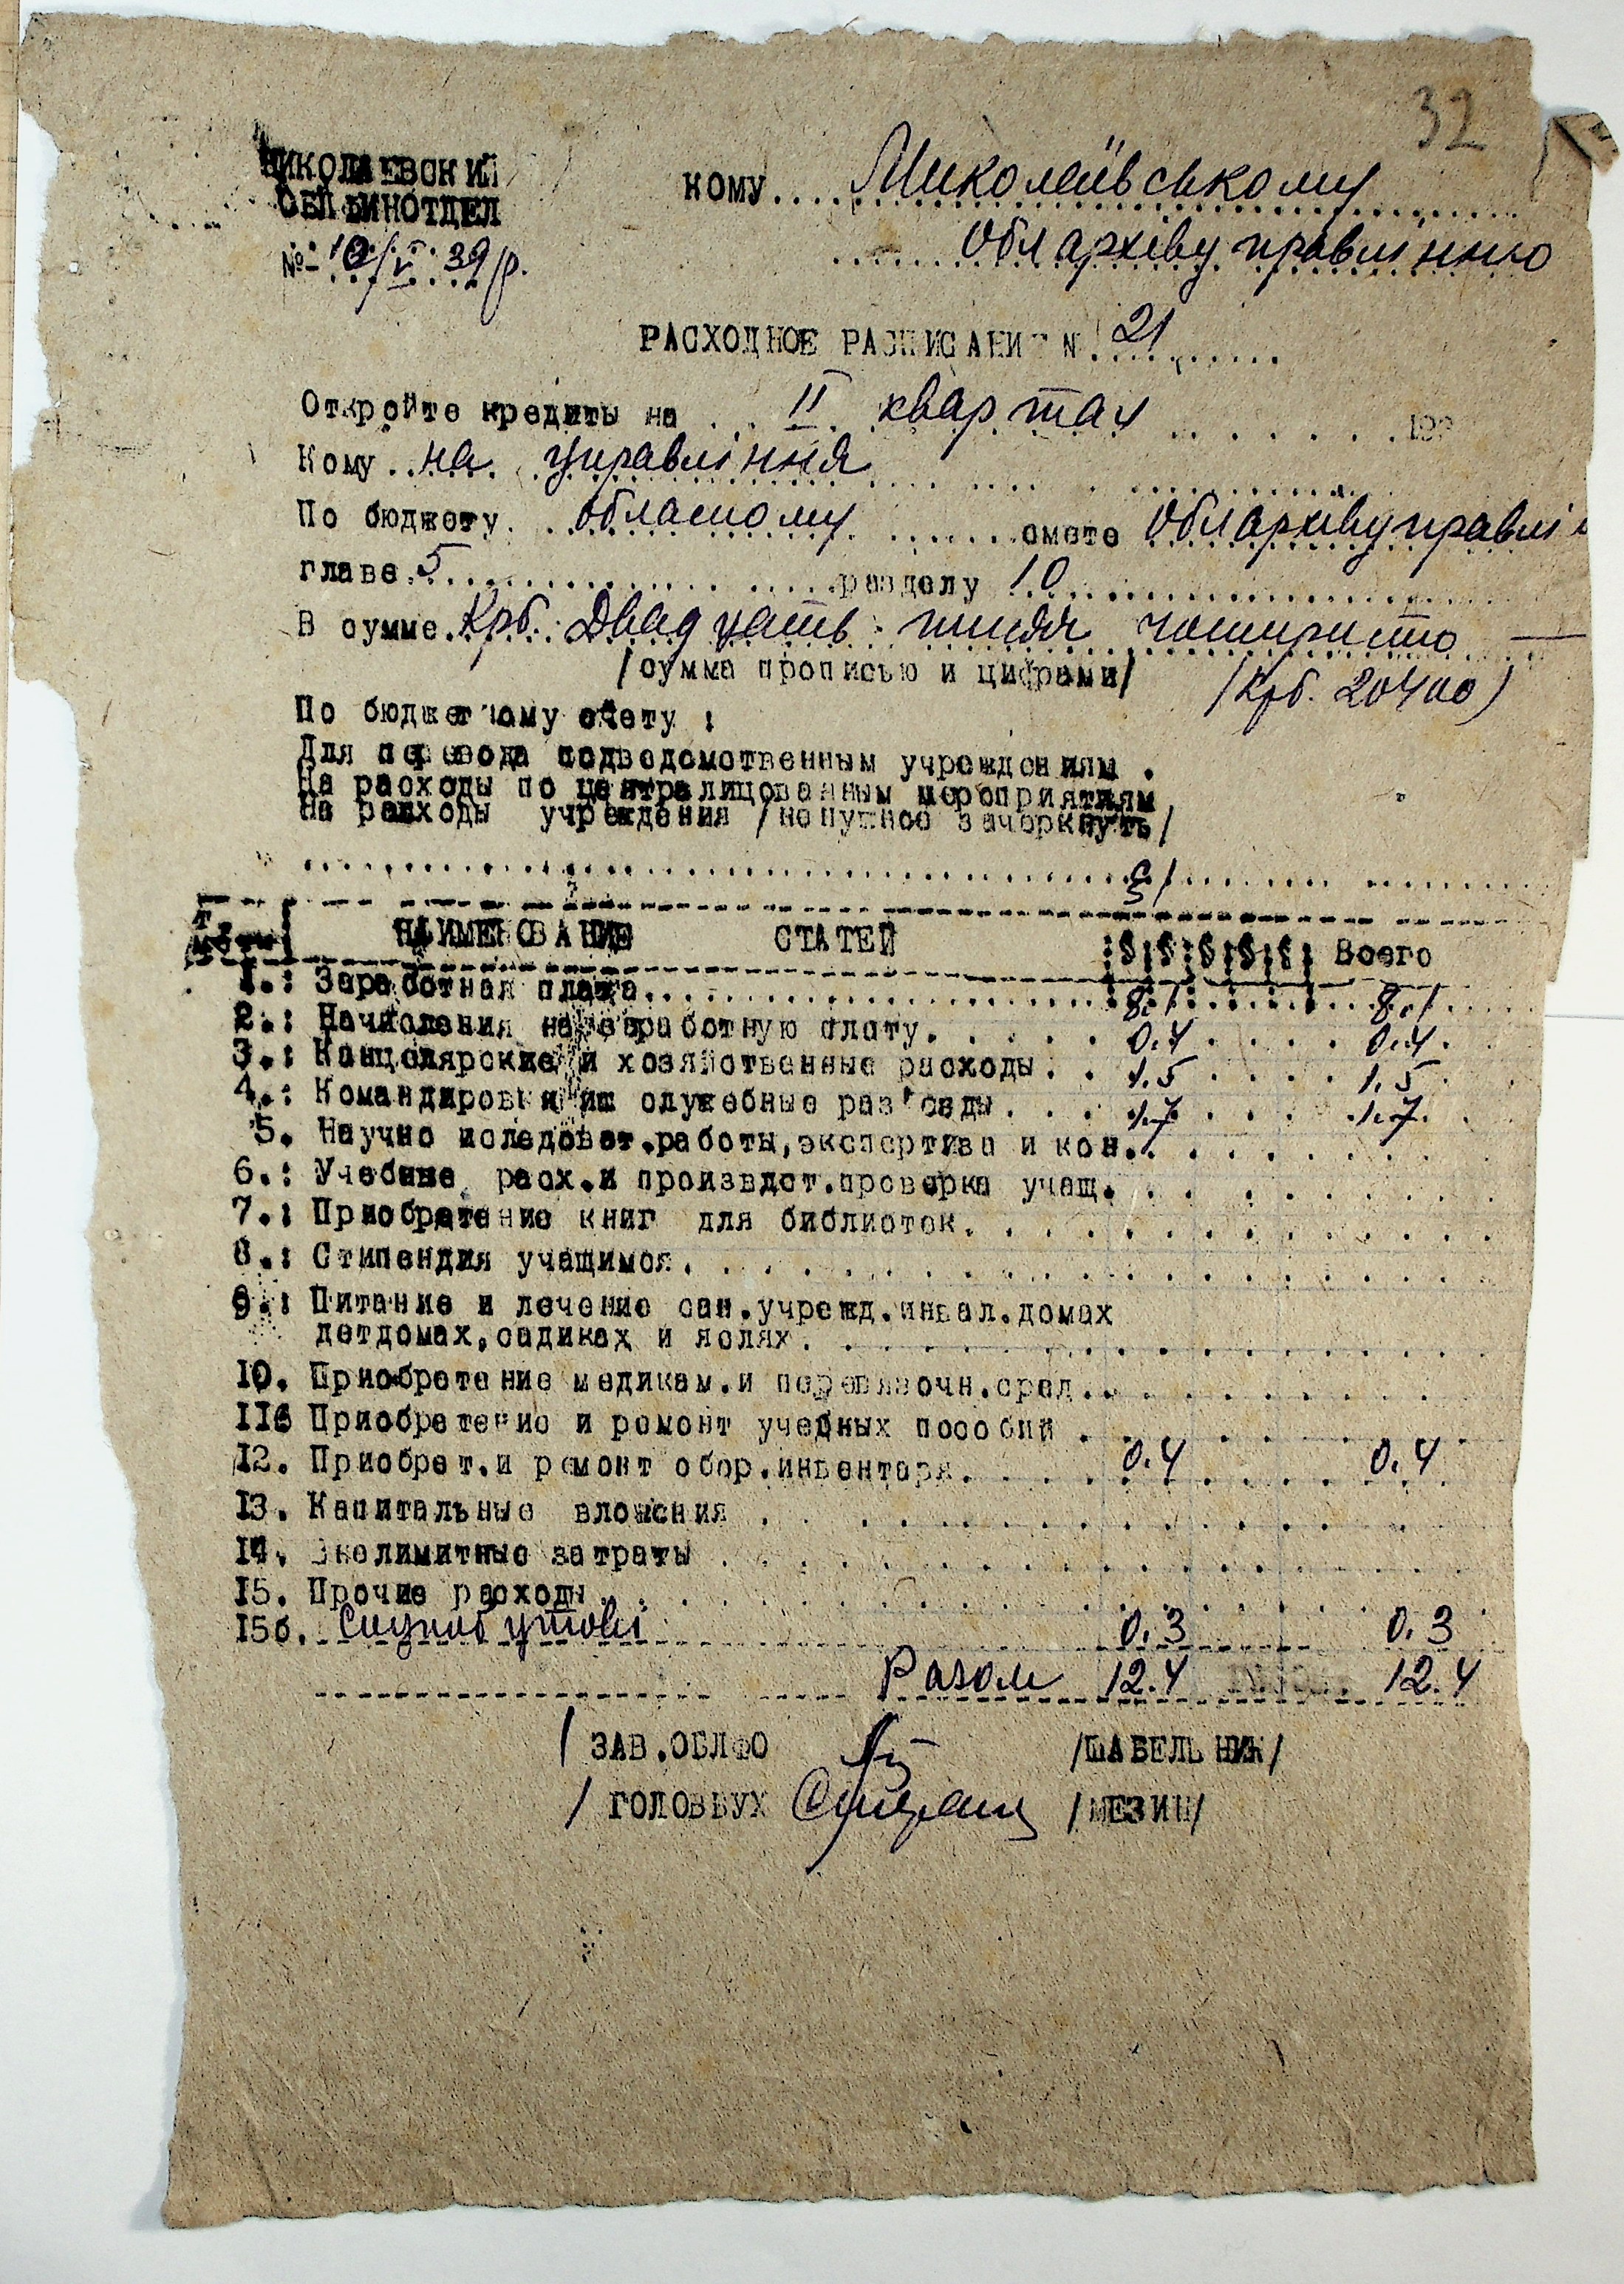 32
НИКОЛАЕВСКИЙ
ОБЛФИНОТДЕЛ
№ 10/V 39 р.
КОМУ.... Миколаївському
Обл архівуправлінню
РАСХОДНОЕ РАСПИСАНИЕ N. 21
Откройте кредиты на II квартал 193
Кому на управління
По бюджету обласному смете Обл архівуправлі
главе 5 разделу 10
В сумме Крб. Двадцать тисяч чотириста —
/сумма прописью и цифрами/ /Крб. 20400)
По бюджетному счету :
Для перевода подведомственным учреждениям .
На расходы по централицованным мероприятиям
На расходы учреждения /ненужное зачеркнуть/
НАИМЕНОВАНИЕ СТАТЕЙ § § § § § Всего
1.: Заработная плата 8.1 8.1
2.: Начисления на заработную плату. 0.4 0.4
3.: Канцелярские и хозяйственные расходы. 1.5 1.5
4.: Командировки и служебные раз'езды. 1.7 1.7
5. Научно иследоват.работы,экспертиза и кон.
6.: Учебные расх.и произвдст.проверка учащ.
7.: Приобретение книг для библиотек.
8.: Стипендия учащимся.
9.: Питание и лечение сан.учрежд.инвал.домах
детдомах,садиках и яслях.
10. Приобретение медикам.и перевязочн.сред.
116 Приобретение и ремонт учебных пособий
12. Приобрет.и ремонт обор.инвентаря. 0.4 0.4
13. Капитальные вложения
14. Внелимитные затраты
15. Прочие расходы
15б. 0.3 0.3
Разом 12.4 12.4
/ ЗАВ.ОБЛФО /ШАБЕЛЬНИК/
/ ГОЛОВБУХ /МЕЗИН/